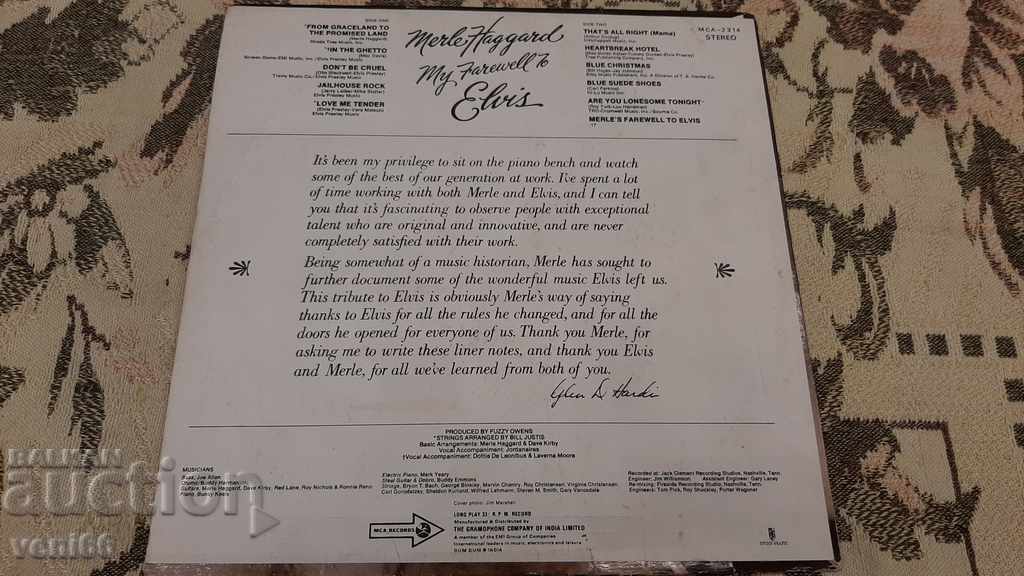 SIDE ONE
"FROM GRACELAND TO
THE PROMISED LAND
(Merle Haggard)
*IN THE GHETTO
(Mac Davis)
DON'T BE CRUEL
(Otis Blackwell-Elvis Presley)
Elvis Presley Music
JAILHOUSE ROCK
Elvis Presley Music
LOVE ME TENDER
(Elvis Presley-Vera Matson)
Elvis Presley Music
Merle Haggard
My Farewell To
Elvis
SIDE TWO
THAT'S ALL RIGHT (Mama)
HEARTBREAK HOTEL
BLUE CHRISTMAS
BLUE SUEDE SHOES
(Carl Perkins)
ARE YOU LONESOME TONIGHT
MERLE'S FAREWELL TO ELVIS
MCA-2314
STEREO
It's been my privilege to sit on the piano bench and watch
some of the best of our generation at work. I've spent a lot
of time working with both Merle and Elvis, and I can tell
you that it's fascinating to observe people with exceptional
talent who are original and innovative, and are never
completely satisfied with their work.
Being somewhat of a music historian, Merle has sought to
further document some of the wonderful music Elvis left us.
This tribute to Elvis is obviously Merle's way of saying
thanks to Elvis for all the rules he changed, and for all the
doors he opened for everyone of us. Thank you Merle, for
asking me to write these liner notes, and thank you Elvis
and Merle, for all we've learned from both of you.
Glen D Hardin
PRODUCED BY FUZZY OWENS
*STRINGS ARRANGED BY BILL JUSTIS
Basic Arrangements: Merle Haggard & Dave Kirby
Vocal Accompaniment: Jordanaires
†Vocal Accompaniment: Dottie De Leonibus & Laverna Moore
MUSICIANS
Bass, Joe Allen
Drums, Buddy Harman
Guitars, Merle Haggard, Dave Kirby, Red Lane, Roy Nichols & Ronnie Reno
Electric Piano, Mark Yeary
Steel Guitar & Dobro, Buddy Emmons
Strings, Bryon T. Bach, George Binkley, Marvin Chantry, Roy Christensen, Virginia Christensen,
Carl Gorodetzky, Sheldon Kurland, Wilfred Lehmann, Steven M. Smith, Gary Vanosdale
Recorded at: Jack Clement Recording Studios, Nashville, Tenn.
Engineer: Jim Williamson. Assistant Engineer: Gary Laney
Re-mixing: Fireside Recording Studios, Nashville, Tenn.
Engineers: Tom Pick, Roy Shockley, Porter Wagoner
Cover photo: Jim Marshall
MCA RECORDS
LONG PLAY 33⅓ R. P. M. RECORD
Manufactured & Distributed by
THE GRAMOPHONE COMPANY OF INDIA LIMITED
A member of the EMI Group of Companies
International leaders in music, electronics and leisure
DUM DUM INDIA
BALKAN
auction
veni66